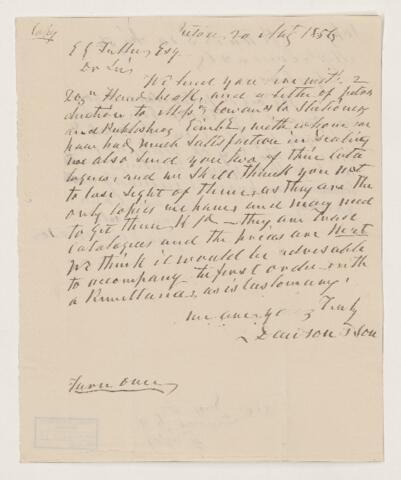 Copy
20 1856
E G Fuller Esq
Dr Sir
We send you
Doz Hand book, and a letter of intro
duction to Stationery
and Publishing with whom we
have had much satisfaction in dealing
we also send you two of their cata
logues, and we shall thank you not
to lose sight of them, as they are the
only copies we have and may need
to get them they are trade
catalogues and the prices are Nett
We think it would be advisable
to accompany the first order with
a Remittance, as is customary,
We are yrs Truly
Dawson & Son
Turn over